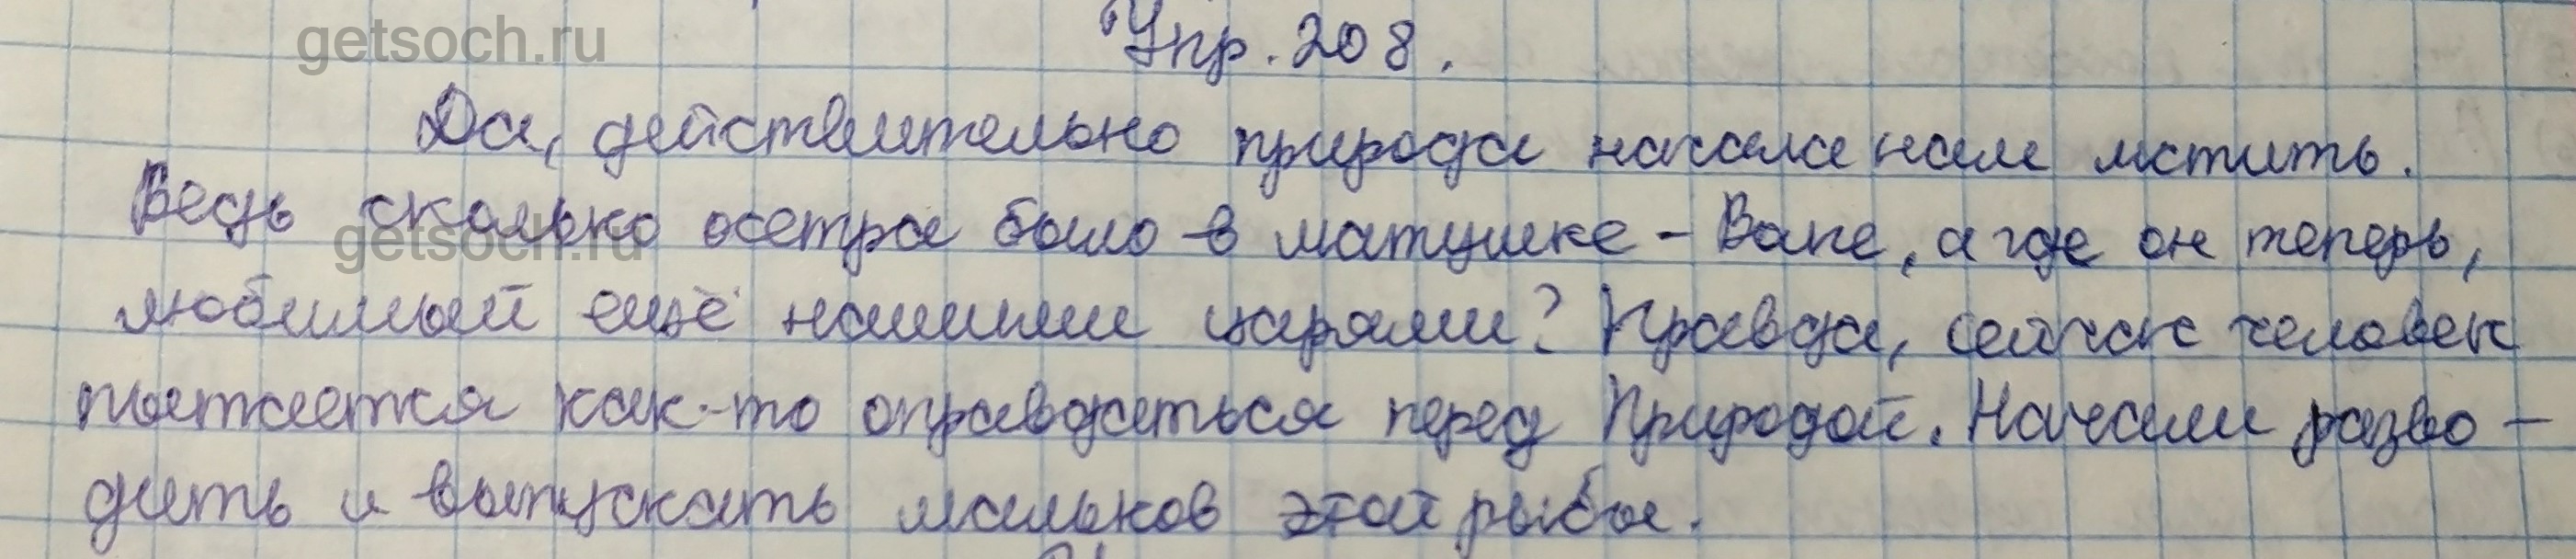 getsoch.ru
Упр. 208.
Да, действительно природа начала нам мстить.
Ведь сколько осетра было в матушке - Волге, а где он теперь,
getsoch.ru
любимый ещё нашими царями? Правда, сейчас человек
пытается как-то оправдаться перед Природой. Начали разво-
дить и выпускать мальков этой рыбы.